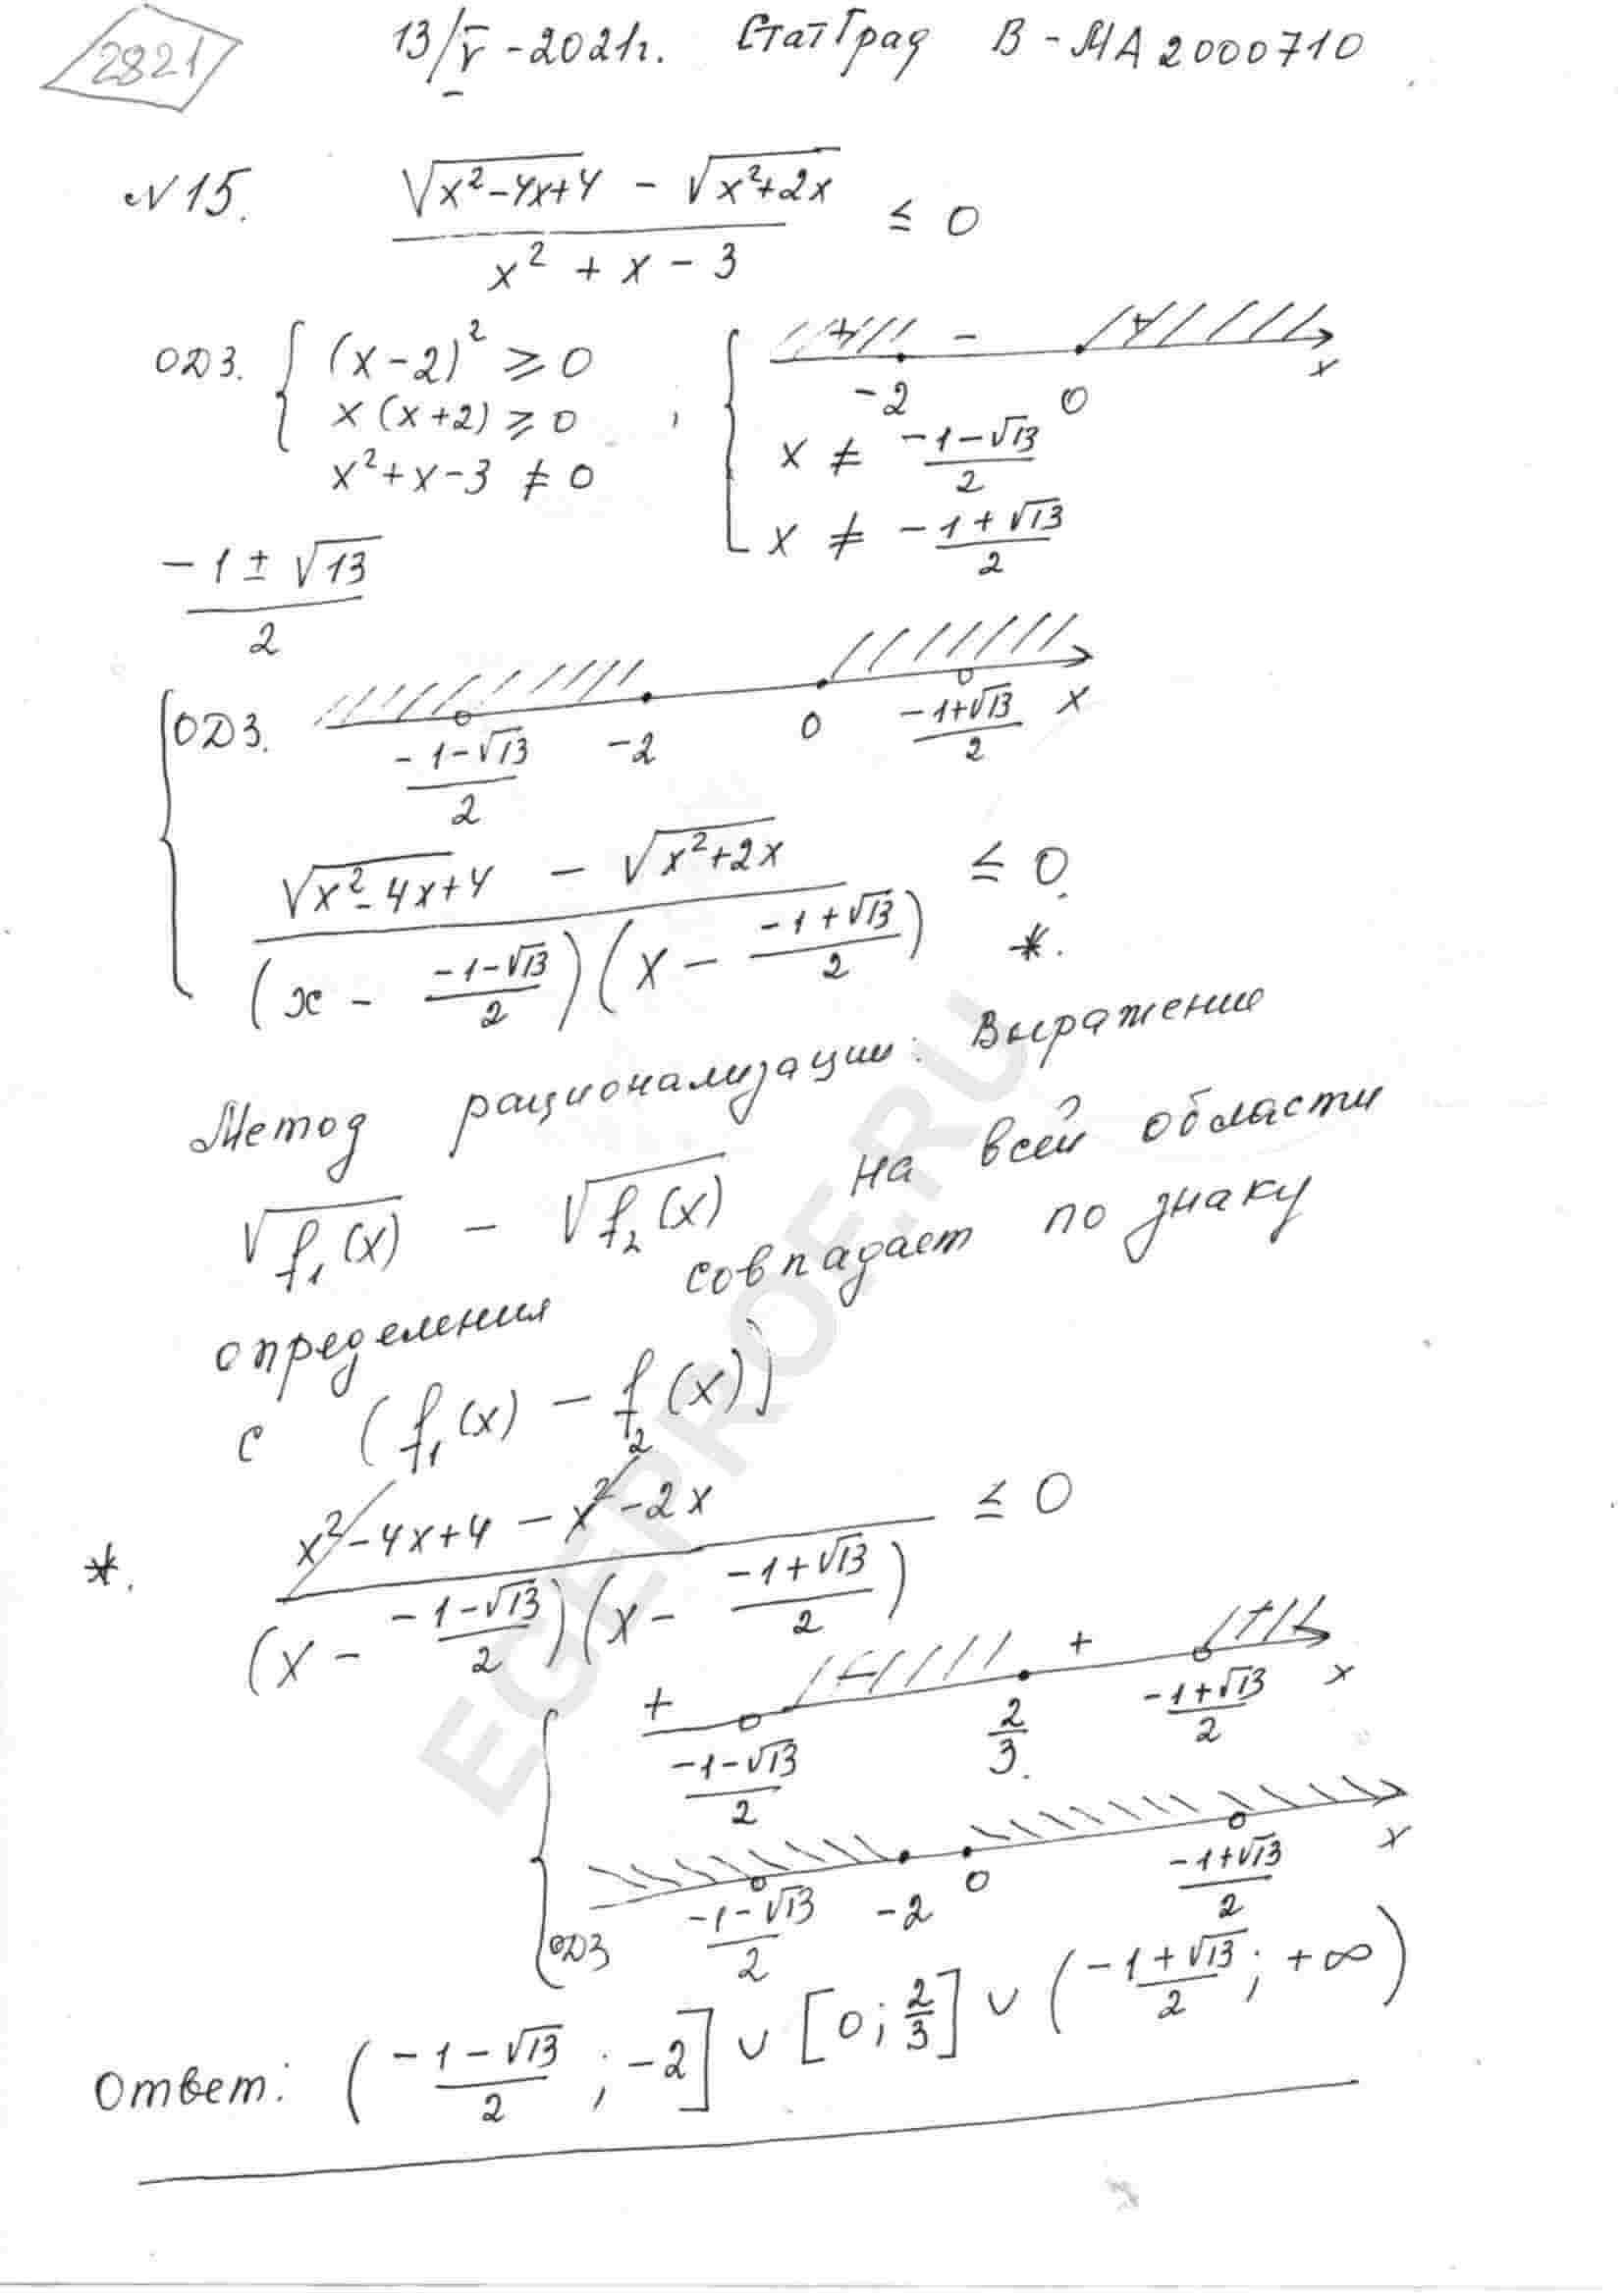 2821
13/V - 2021г. СтатГрад В - МА 2000710
N 15. (√(x² - 4x + 4) - √(x² + 2x)) / (x² + x - 3) ≤ 0
ОДЗ. { (x - 2)² ⩾ 0 ; { + -2 - 0 + x
x (x + 2) ⩾ 0
x² + x - 3 ≠ 0
x ≠ (-1 - √13) / 2
x ≠ (-1 + √13) / 2
(-1 ± √13) / 2
{ ОДЗ. (-1 - √13) / 2 -2 0 (-1 + √13) / 2 x
(√(x² - 4x + 4) - √(x² + 2x)) / ((x - (-1 - √13) / 2)(x - (-1 + √13) / 2)) ≤ 0 *.
Метод рационализации: Выражение
√(f₁(x)) - √(f₂(x)) на всей области
определения совпадает по знаку
с (f₁(x) - f₂(x))
*. (x² - 4x + 4 - x² - 2x) / ((x - (-1 - √13) / 2)(x - (-1 + √13) / 2)) ≤ 0
{ + (-1 - √13) / 2 - 2/3. + (-1 + √13) / 2 x
ОДЗ (-1 - √13) / 2 -2 0 (-1 + √13) / 2 x
Ответ: ((-1 - √13) / 2 ; -2] ∪ [0; 2/3] ∪ ((-1 + √13) / 2 ; +∞)
EGEPROF.RU